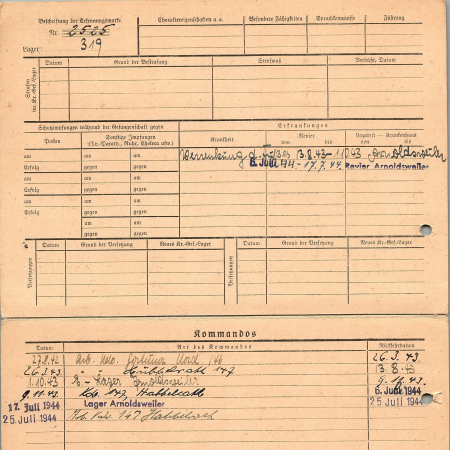 Beschriftung der Erkennungsmarke
Nr. 2525
Lager: 319
Charaktereigenschaften u. a.
Besondere Fähigkeiten
Sprachkenntnisse
Führung
Strafen im Kr.-Gef.-Lager
Datum
Grund der Bestrafung
Strafmaß
Verbüßt, Datum
Schutzimpfungen während der Gefangenschaft gegen
Erkrankungen
Pocken
Sonstige Impfungen
(Ty.-Paraty., Ruhr, Cholera usw.)
Krankheit
Revier
von bis
Lazarett — Krankenhaus
von bis
am am am
Erfolg gegen gegen
am am am
Erfolg gegen gegen
am am am
Erfolg gegen gegen
am am
gegen gegen
Verrenkung d. 13.8.43 — Arnoldsweiler
6. Juli 44 - 17.7.44 Revier Arnoldsweiler
Versetzungen
Datum
Grund der Versetzung
Neues Kr.-Gef.-Lager
Versetzungen
Datum
Grund der Versetzung
Neues Kr.-Gef.-Lager
Kommandos
Datum
Art des Kommandos
Rückkehrdatum
27.8.42 Arb. Kdo. Fortuna Nord 146 26.3.43
26.3.43 147 13.8.43
1.10.43 Lager Arnoldsweiler 9.11.43.
9.11.43 Kdo. 147, 6. Juli 1944
17. Juli 1944 Lager Arnoldsweiler 25. Juli 1944
25. Juli 1944 147